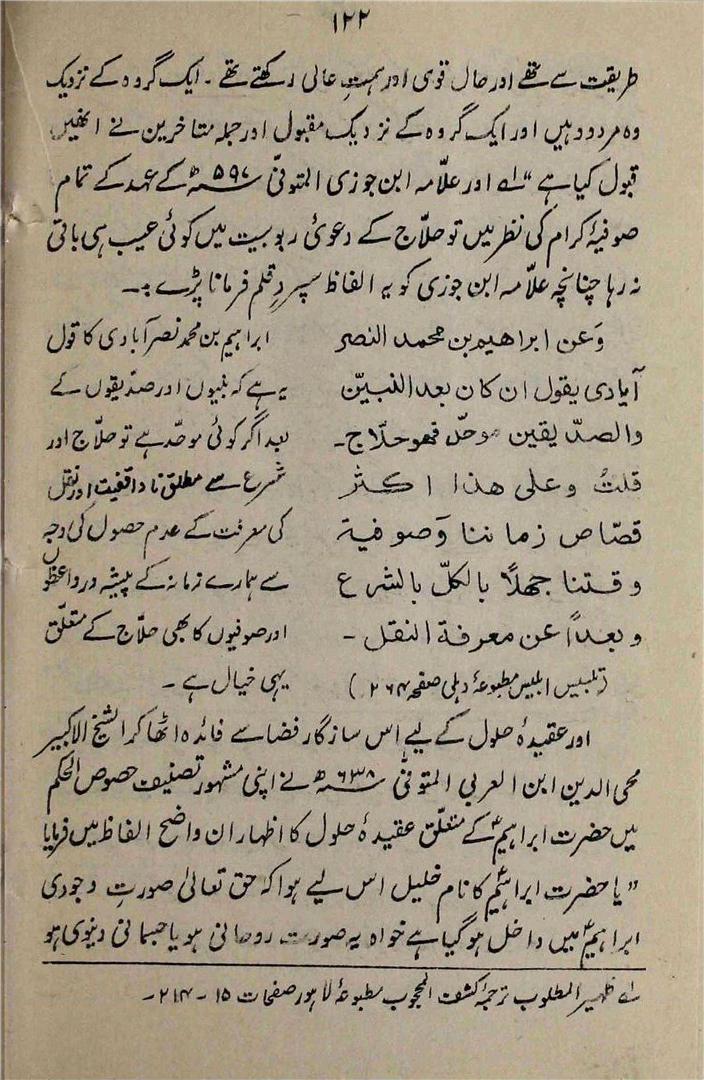 ۱۲۲
طریقت سے تھے اور حال قوی اور ہمتِ عالی رکھتے تھے ۔ ایک گروہ کے نزدیک
وہ مردود ہیں اور ایک گروہ کے نزدیک مقبول اور جملہ متاخرین نے انھیں
قبول کیا ہے "؎۱ اور علّامہ ابن جوزی المتوفّٰی ۵۹۷ھ کے عہد کے تمام
صوفیۂ کرام کی نظر میں تو حلّاج کے دعویٔ ربوبیت میں کوئی عیب ہی باقی
نہ رہا چنانچہ علّامہ ابن جوزی کو یہ الفاظ سپردِ قلم فرمانا پڑے :۔
وَعن ابراھیم بن محمد النصر
آیادی یقول ان کان بعد النبیّن
والصدّیقین موحّد فھو حلّاج۔
قلتُ وعلی ھذا اکثر
قصّاص زماننا وَصوفیة
وقتنا جھلاً بالکلّ بالشرع
وبعداً عن معرفة النقل ۔
(تلبیس ابلیس مطبوعۂ دہلی صفحہ ۲۶۴)
ابراہیم بن محمد نصر آبادی کا قول
یہ ہے کہ نبیوں اور صدّیقوں کے
بعد اگر کوئی موحّد ہے تو حلّاج اور
شرع سے مطلق ناواقفیت اور نقل
کی معرفت کے عدم حصول کی وجہ
سے ہمارے زمانہ کے پیشہ ور واعظوں
اور صوفیوں کا بھی حلّاج کے متعلّق
یہی خیال ہے ۔
اور عقیدۂ حلول کے لیے اس سازگار فضا سے فائدہ اٹھا کر الشیخ الاکبیر
محی الدین ابن العربی المتوفّٰی ۶۳۸ھ نے اپنی مشہور تصنیف خصوص الحکم
میں حضرت ابراہیمؑ کے متعلّق عقیدۂ حلول کا اظہار ان واضح الفاظ میں فرمایا
"یا حضرت ابراہیمؑ کا نام خلیل اس لیے ہوا کہ حق تعالیٰ صورتِ وجودی
ابراہیمؑ میں داخل ہو گیا ہے خواہ یہ صورت روحانی ہو یا جسمانی دنیوی ہو
؎۱ ظہیر المطلوب ترجمۂ کشف المحجوب مطبوعۂ لاہور صفحات ۱۵ - ۲۱۴ ۔